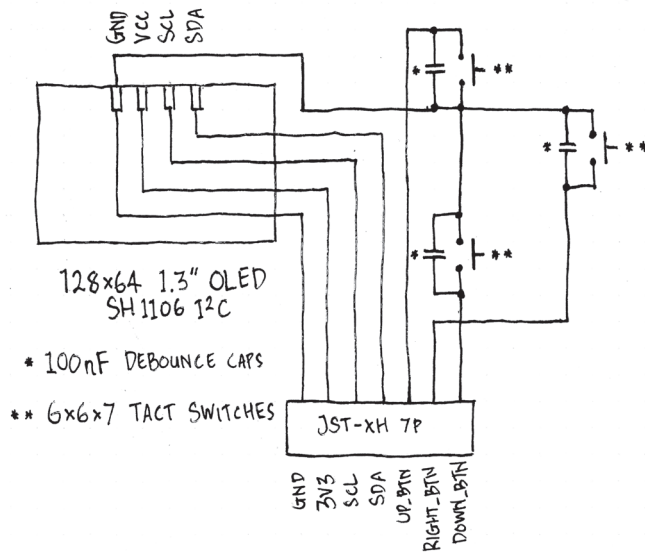 GND
VCC
SCL
SDA
*
**
*
**
*
**
128x64 1.3" OLED
SH1106 I²C
* 100nF DEBOUNCE CAPS
** 6x6x7 TACT SWITCHES
JST-XH 7P
GND
3V3
SCL
SDA
UP_BTN
RIGHT_BTN
DOWN_BTN